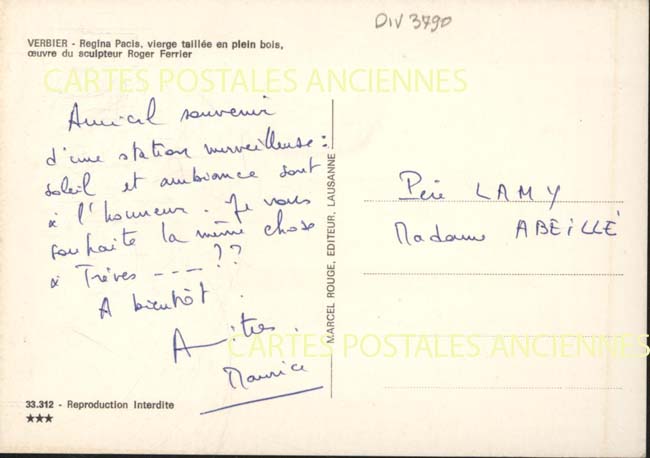 DIV 3790
VERBIER - Regina Pacis, vierge taillée en plein bois,
œuvre du sculpteur Roger Ferrier
CARTES POSTALES ANCIENNES
Amical souvenir
d'une station merveilleuse :
soleil et ambiance sont
à l'honneur. Je vous
souhaite la même chose
à Trèves - - - - ??
A bientôt.
Amitiés.
Maurice
MARCEL ROUGE, EDITEUR, LAUSANNE
Père LAMY
Madame ABEILLÉ
CARTES POSTALES ANCIENNES
33.312 - Reproduction Interdite
★★★